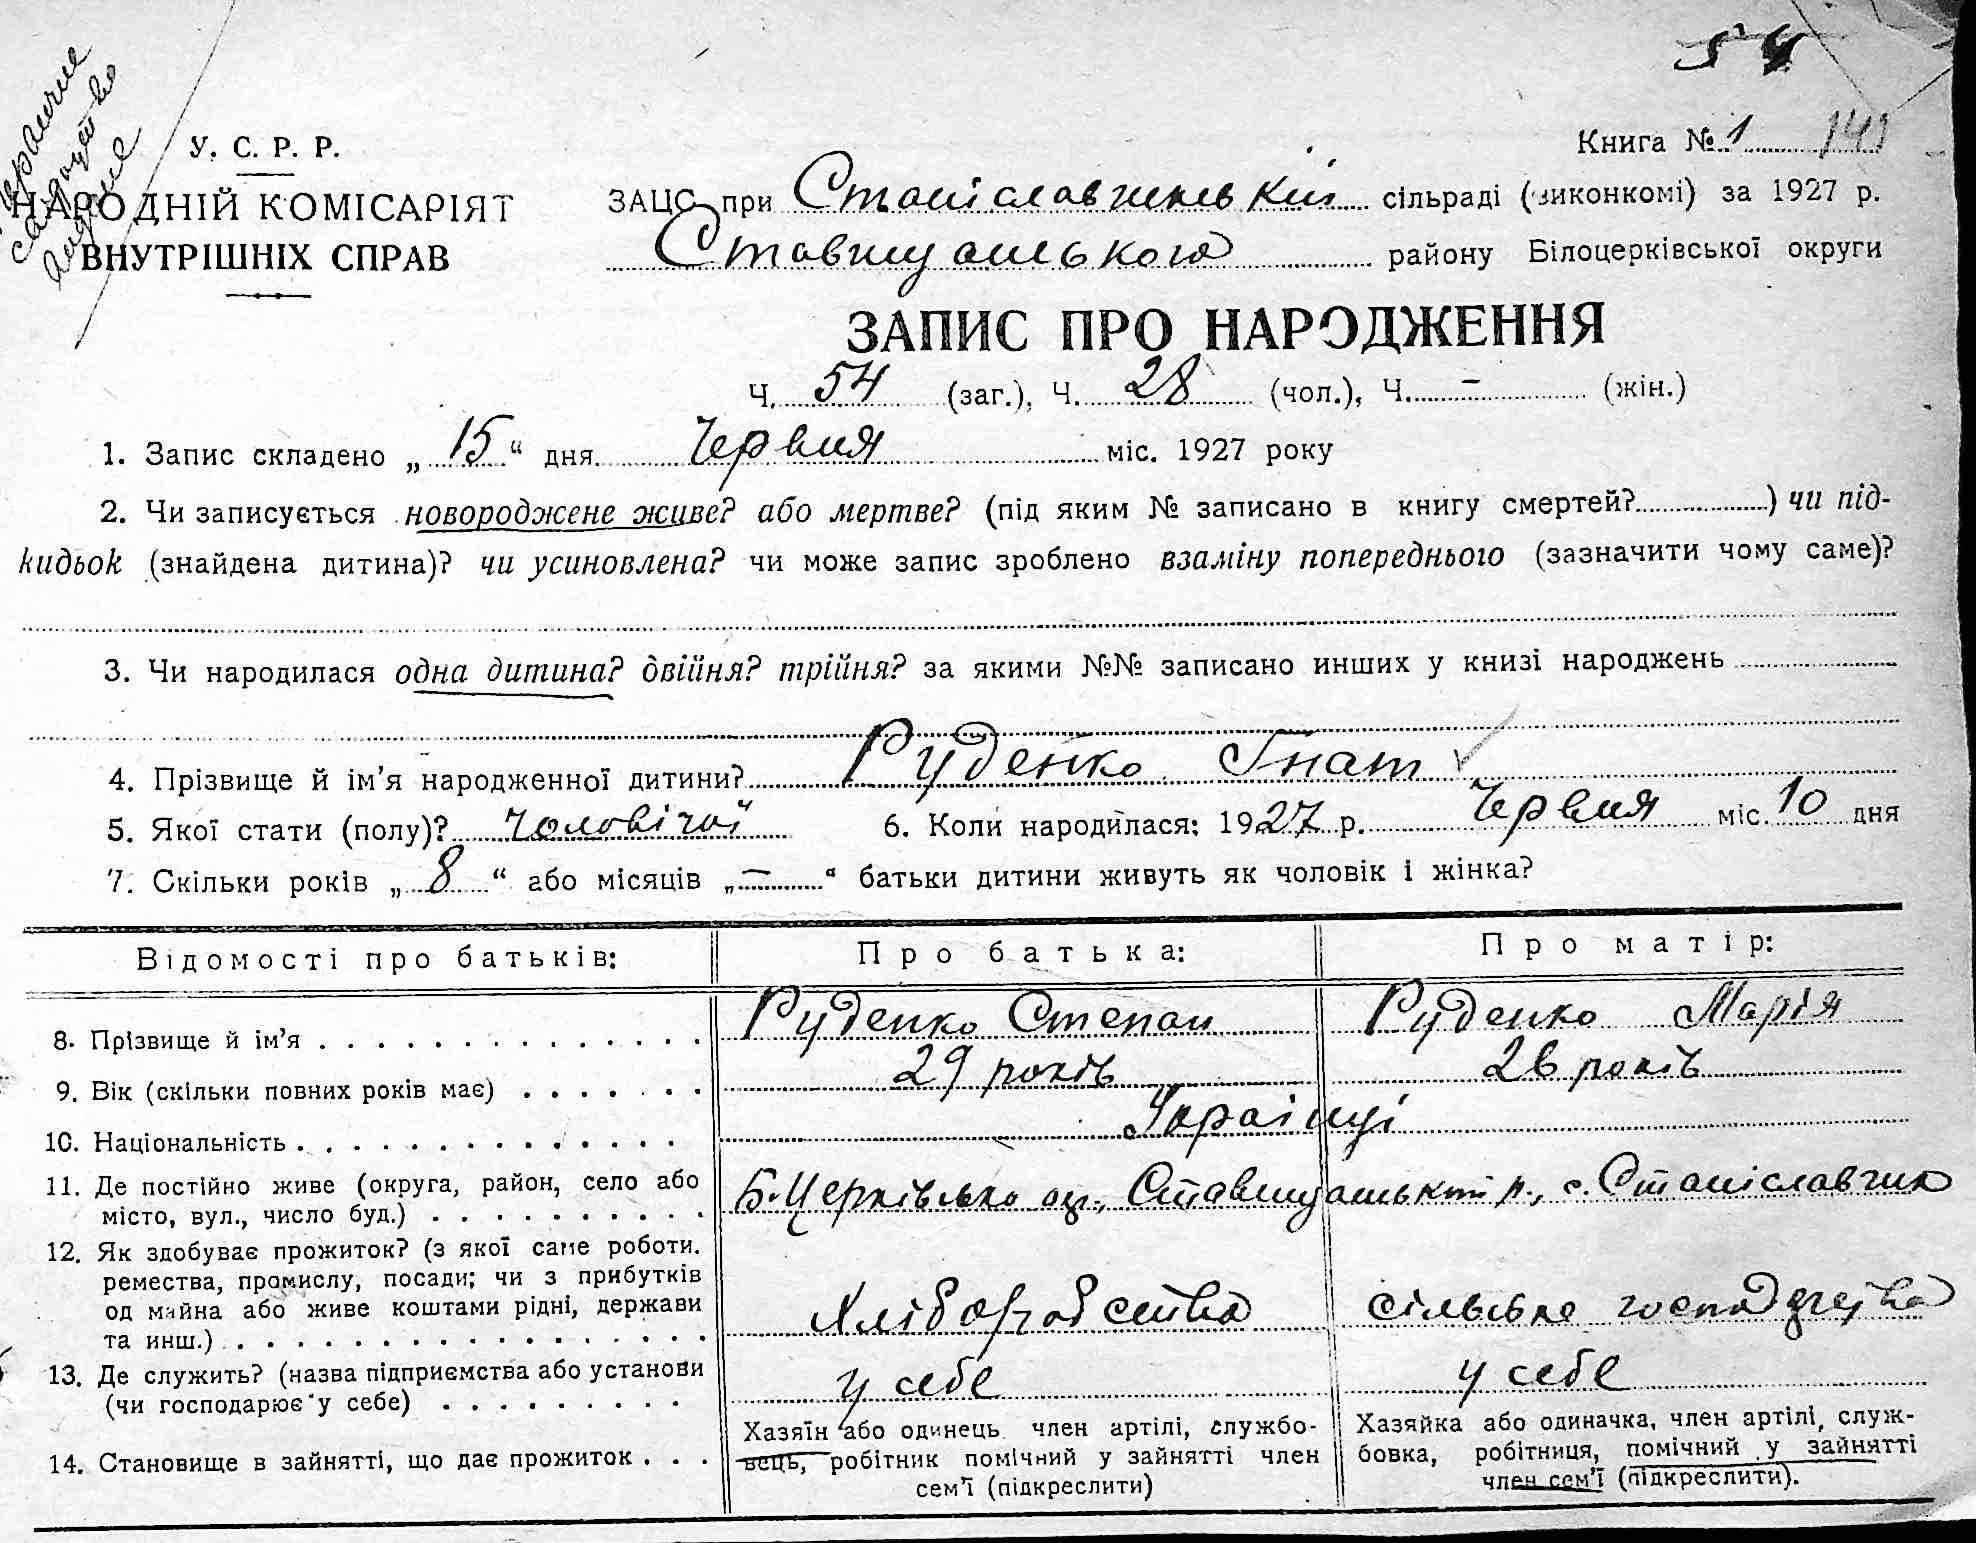 54
Книга № 1 141
У. С. Р. Р.
НАРОДНІЙ КОМІСАРІЯТ
ВНУТРІШНІХ СПРАВ
ЗАЦС при Станіславчикській сільраді (виконкомі) за 1927 р.
Ставищанського району Білоцерківської округи
ЗАПИС ПРО НАРОДЖЕННЯ
Ч. 54 (заг.), Ч. 28 (чол.), Ч. – (жін.)
1. Запис складено „15“ дня Червня міс. 1927 року
2. Чи записується новороджене живе? або мертве? (під яким № записано в книгу смертей? ) чи під-
кидьок (знайдена дитина)? чи усиновлена? чи може запис зроблено взаміну попереднього (зазначити чому саме)?
3. Чи народилася одна дитина? двійня? трійня? за якими №№ записано инших у книзі народжень
4. Прізвище й ім'я народженної дитини? Руденко Гнат
5. Якої стати (полу)? Чоловічої 6. Коли народилася: 1927 р. Червня міс. 10 дня
7. Скільки років „8“ або місяців „–“ батьки дитини живуть як чоловік і жінка?
Відомості про батьків: Про батька: Про матір:
8. Прізвище й ім'я Руденко Степан Руденко Марія
9. Вік (скільки повних років має) 29 років 26 років
10. Національність Українці
11. Де постійно живе (округа, район, село або
місто, вул., число буд.) Б-Церківська ок., Ставищанський р., с. Станіславчик
12. Як здобуває прожиток? (з якої саме роботи,
ремества, промислу, посади; чи з прибутків
од майна або живе коштами рідні, держави
та инш.) Хліборобство сільське господарство
13. Де служить? (назва підприємства або установи
(чи господарює у себе) у себе у себе
14. Становище в зайнятті, що дає прожиток
Хазяїн або одинець, член артілі, службо-
вець, робітник помічний у зайнятті член
сем'ї (підкреслити)
Хазяйка або одиначка, член артілі, служ-
бовка, робітниця, помічний у зайнятті
член сем'ї (підкреслити).